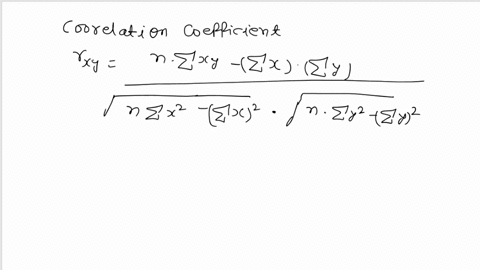 Coorelation Coefficient
r_xy = n·∑xy -(∑x)·(∑y)
√n∑x² -(∑x)² · √n·∑y² -(∑y)²